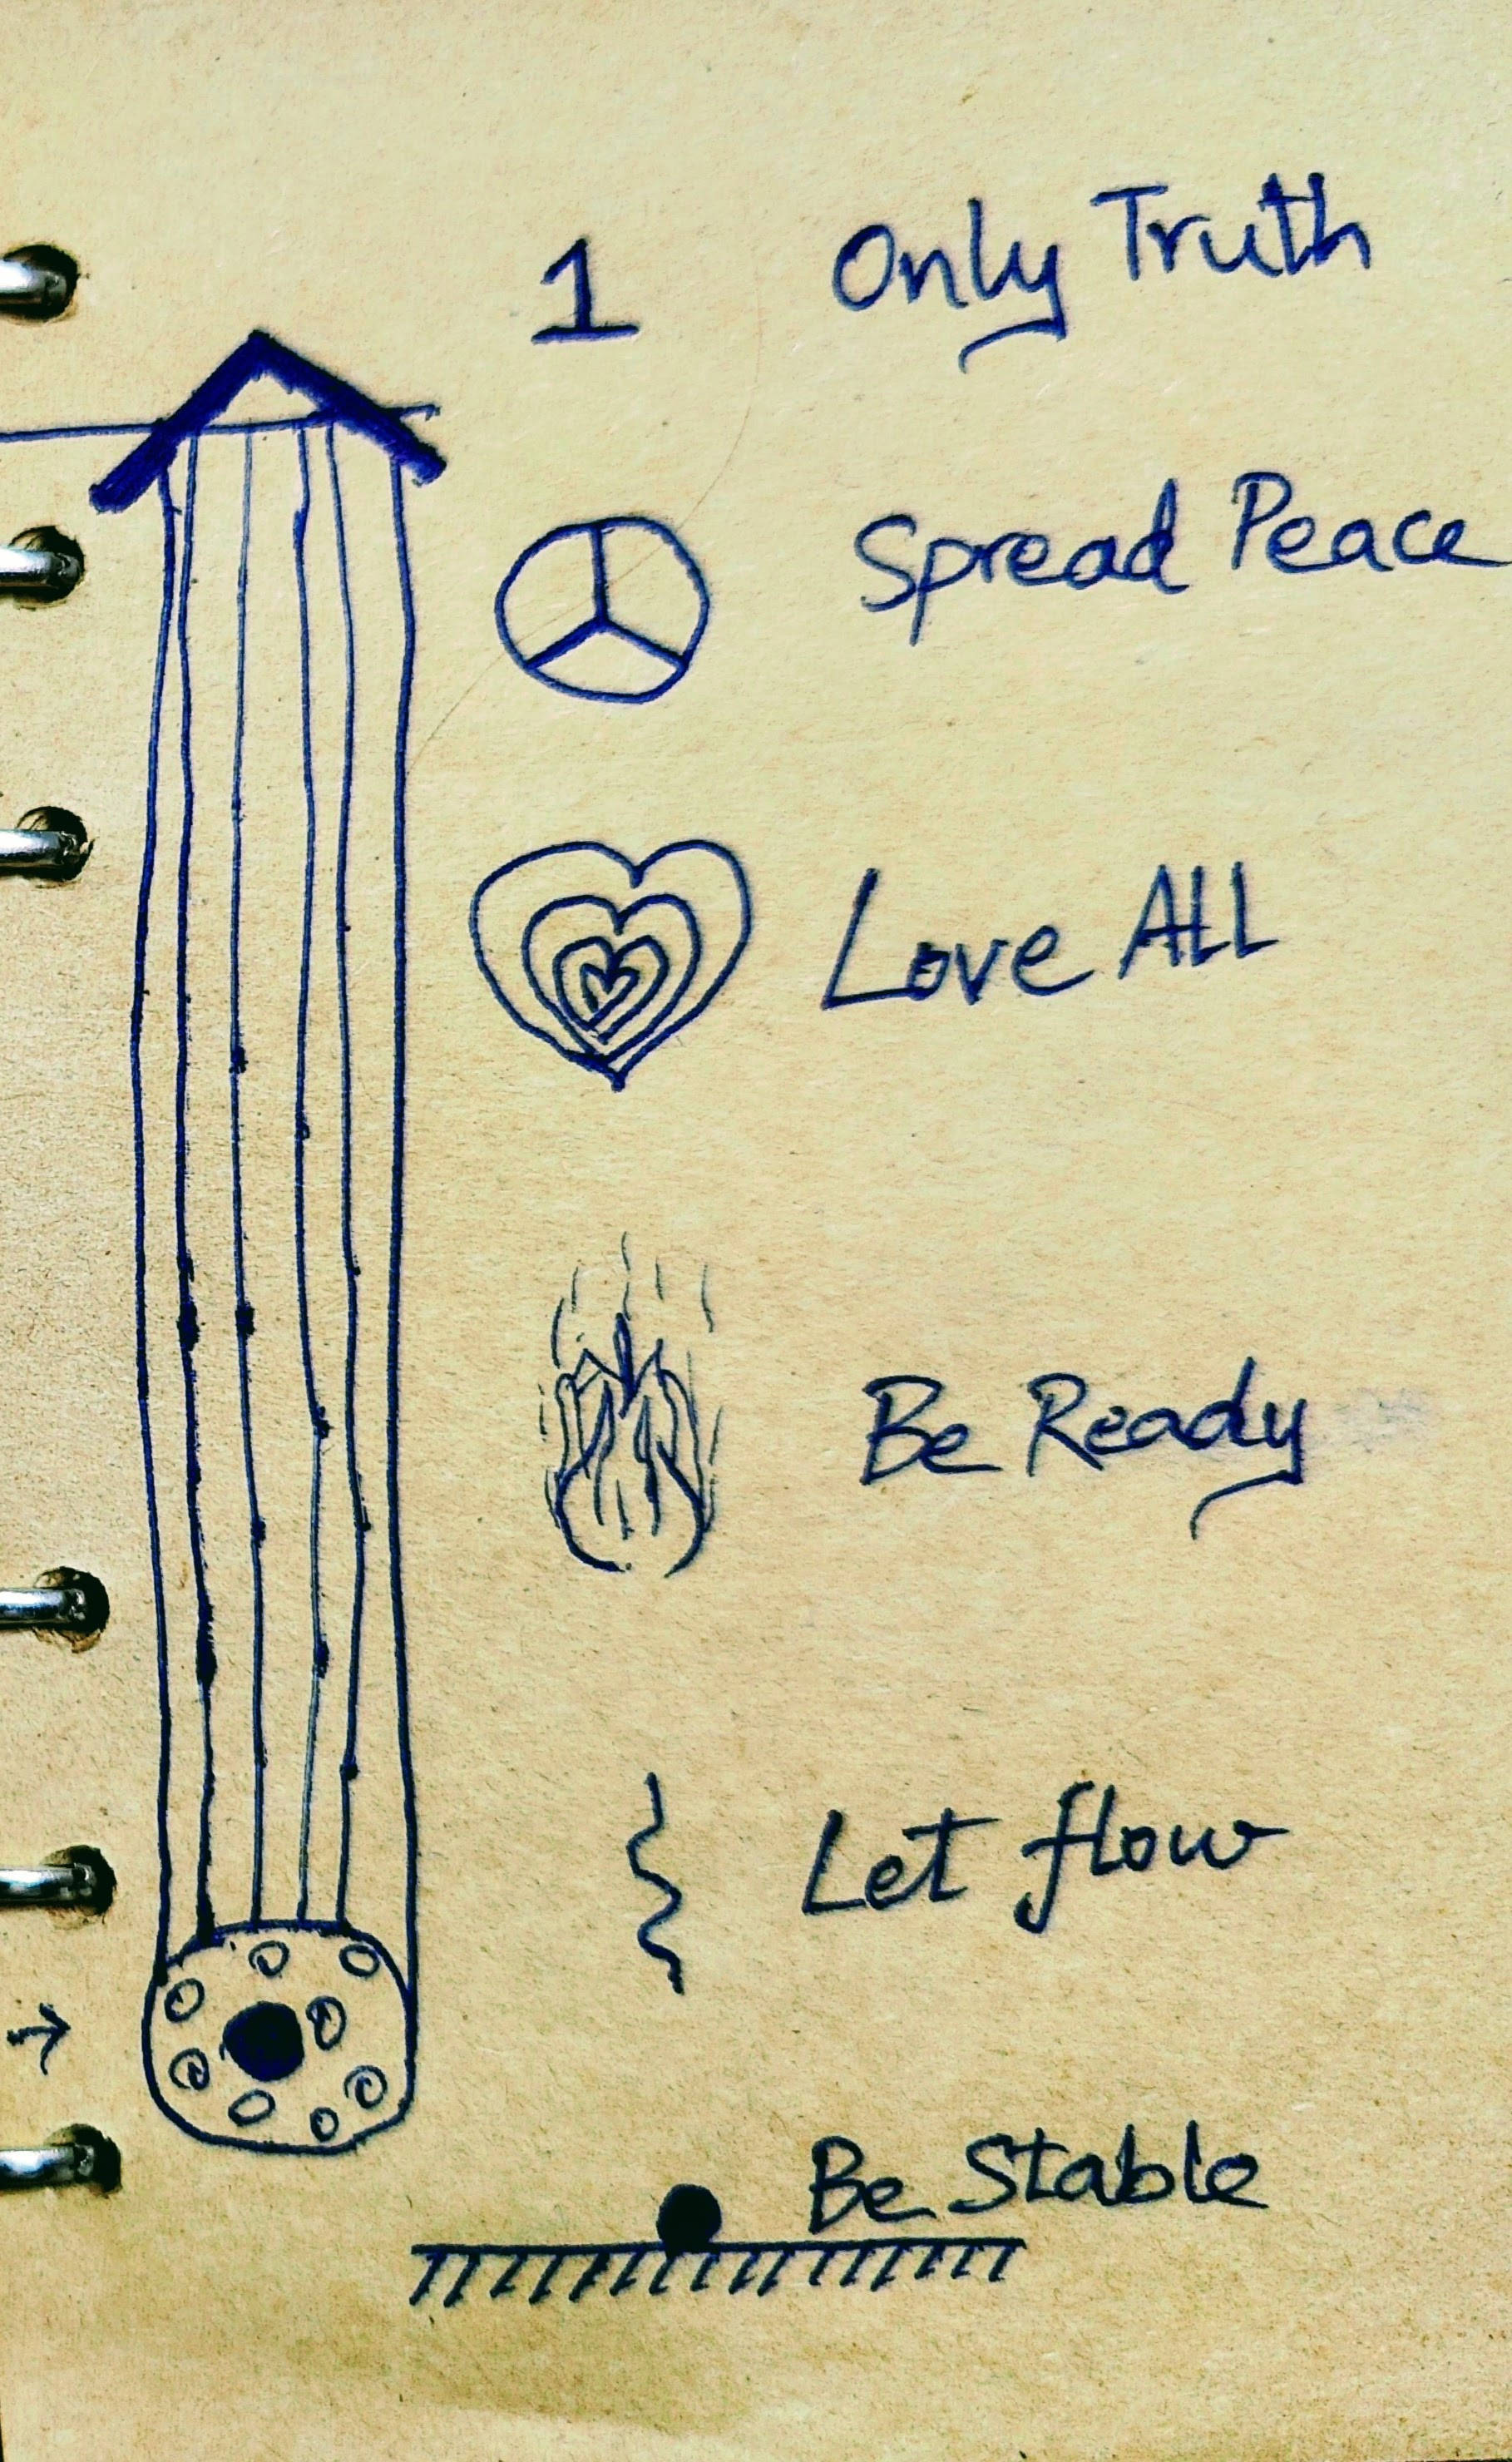 1 Only Truth
Spread Peace
Love ALL
Be Ready
Let flow
Be Stable